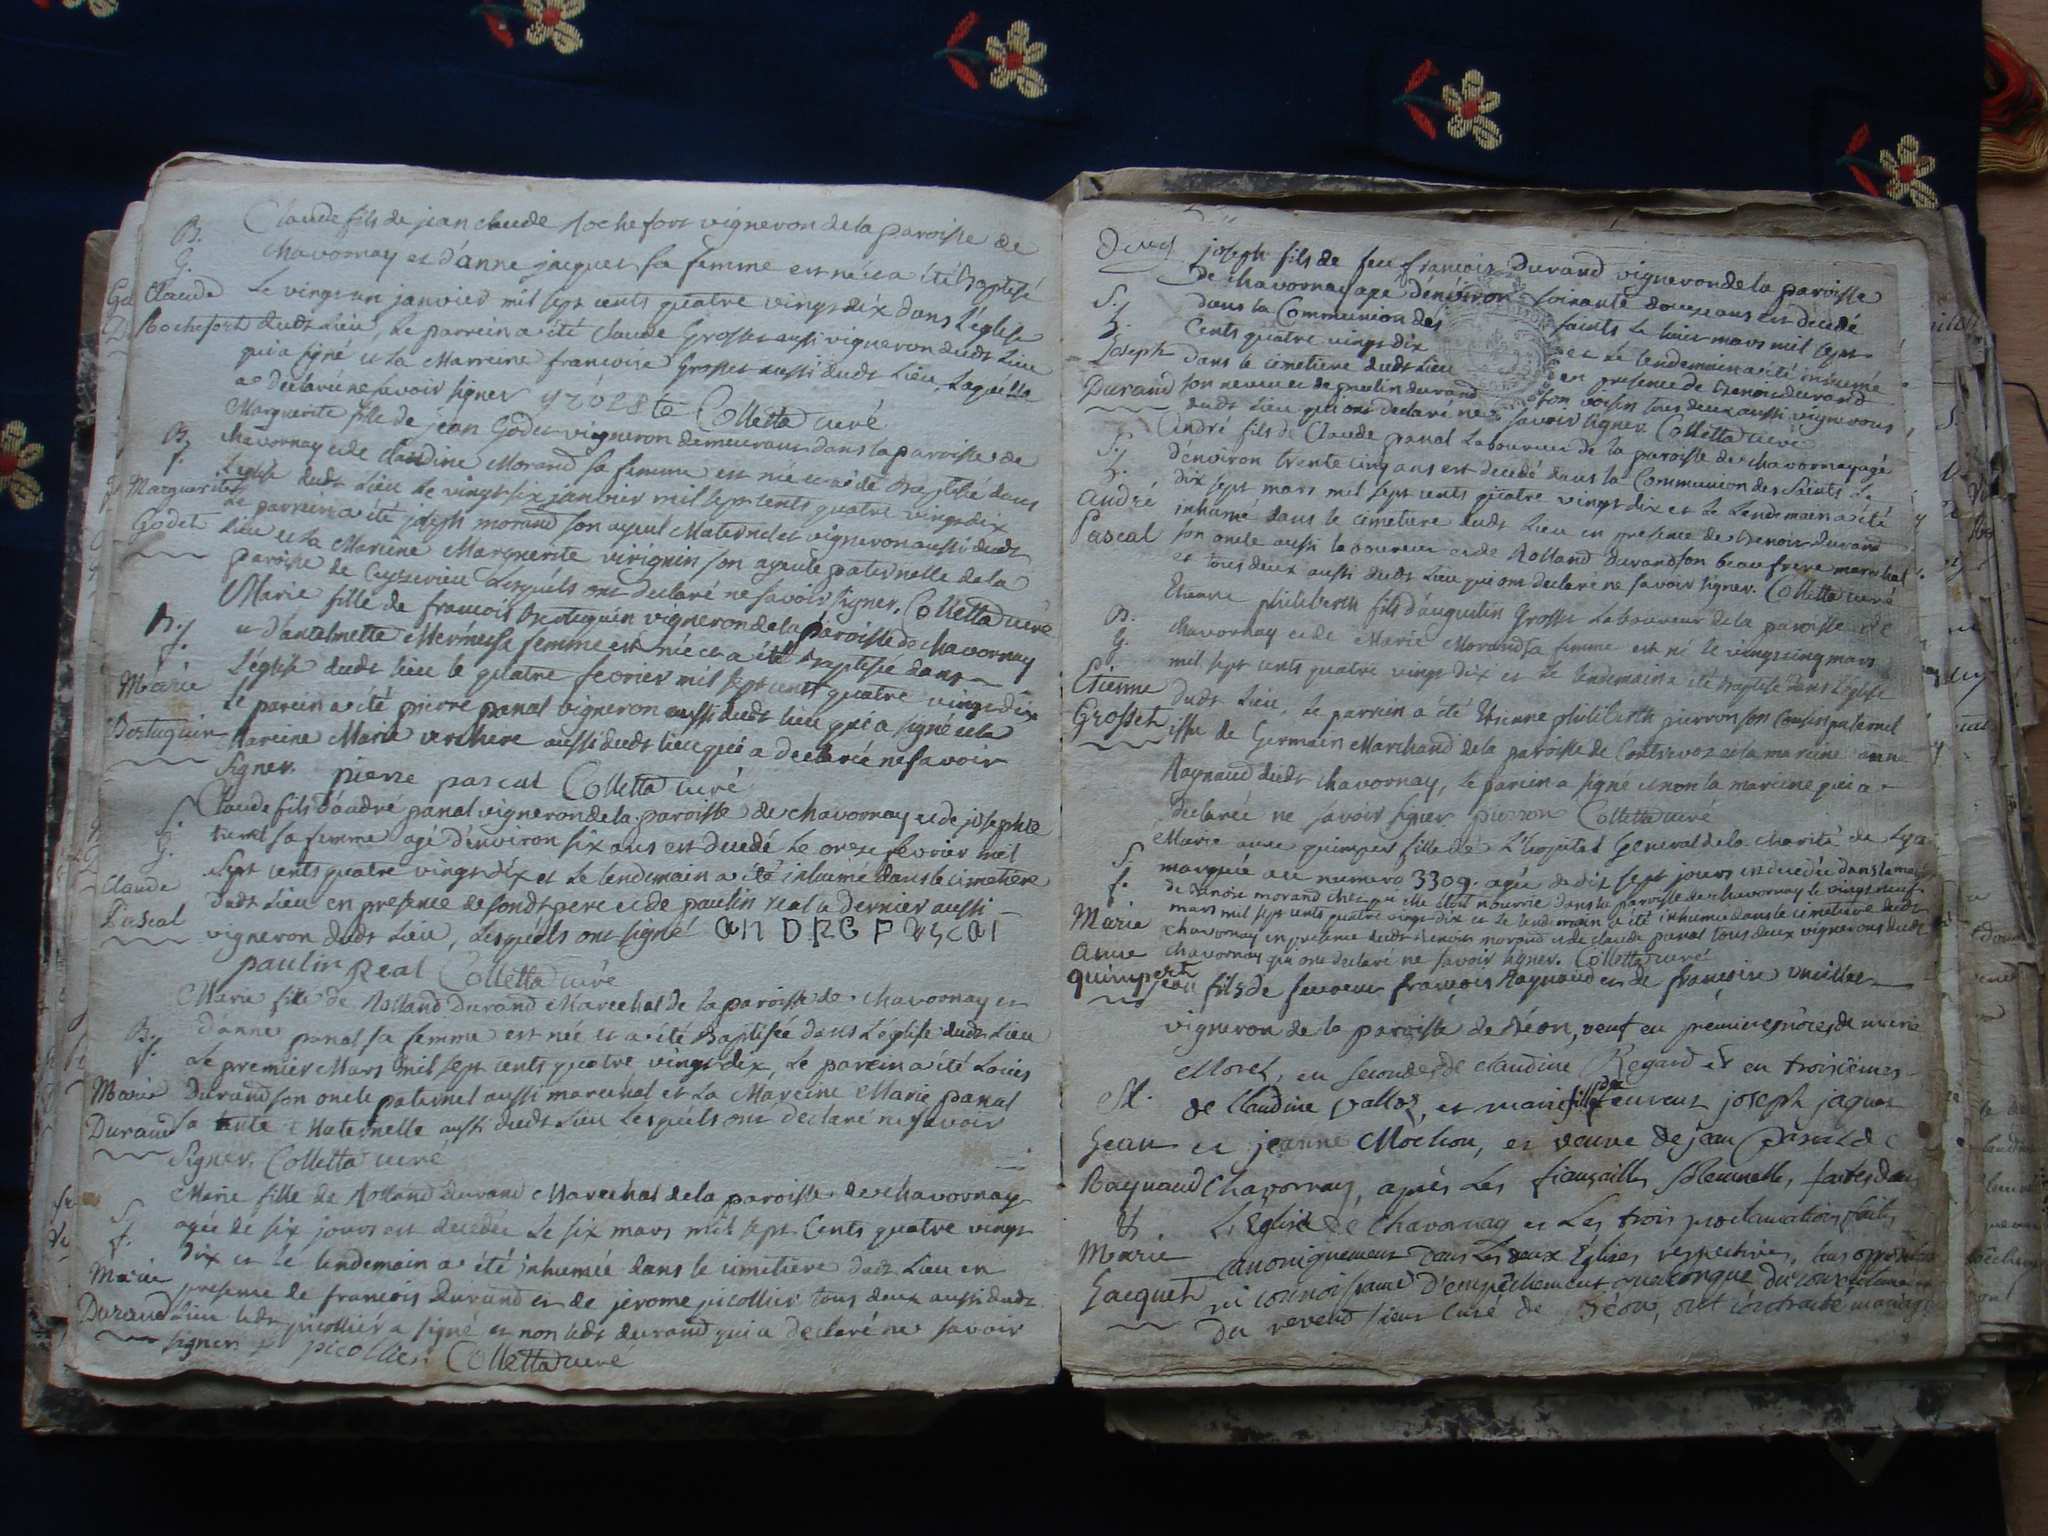 Claude fils de jean claude Rochefort vigneron de la paroisse de
B.
chavornay et d'anne jacquet sa femme est né et a été Baptisé
G.
Claude
le vingt un janvier mil sept cents quatre vingt dix dans l'église
Rochefort
dudt Lieu, Le parrein a été Claude Grosset aussi vigneron dudt Lieu
qui a signé et La Marreine francoise Grosset aussi dudt Lieu, Laquelle
a declaré ne savoir signer Colletta curé
Marguerite fille de jean Godet vigneron demeurant dans la paroisse de
B.
chavornay et de claudine Morand sa femme est née et a été Baptisée dans
f.
L'église dudt Lieu Le vingt six janvier mil sept cents quatre vingt dix
Marguerite
Le parrein a été joseph morand son ayeul Maternel et vigneron aussi dudt
Godet
Lieu et La Mareine Marguerite virignin son ayeule paternelle de la
paroisse de Lesquels ont declaré ne savoir signer. Colletta curé
Marie fille de francois Bertuquin vigneron de la paroisse de chavornay
B.
et d'antelmette sa femme est née et a été Baptisée dans
f.
L'église dudt lieu le quatre fevrier mil sept cent quatre vingt dix
Marie
Le parein a été pierre panal vigneron aussi dudt lieu qui a signé et la
Bertuquin
Mareine Marie verchere aussi dudt lieu qui a declaré ne savoir
signer. pierre pascal Colletta curé
Claude fils d'andré panal vigneron de la paroisse de chavornay et de josephte
S.
sa femme agé d'environ six ans est decedé Le onze fevrier mil
G.
sept cents quatre vingt dix et Le lendemain a été inhumé dans le cimetiere
Claude
dudt Lieu en presence de sondt pere et de paulin real ce dernier aussi
Pascal
vigneron dudt Lieu, Lesquels ont signé an DRE Pascal
paulin Real Colletta curé
Marie fille de Rolland Durand Marechal de la paroisse de chavornay et
B.
d'anne panal sa femme est née et a été Baptisée dans L'église dudt Lieu
f.
Le premier Mars mil sept cents quatre vingt dix, Le parein a été Louis
Marie
Durand son oncle paternel aussi marechal et La Mareine Marie panal
Durand
sa tente Maternelle aussi dudt Lieu Lesquels ont declaré ne savoir
signer. Colletta curé
Marie fille de Rolland durand Marechal de la paroisse de chavornay
S.
agée de six jours est decedée Le six mars mil sept Cents quatre vingt
f.
Dix et le lendemain a été inhumée dans le cimetiere dudt Lieu en
Marie
presence de francois durand et de jerome picollier tous deux aussi dudt
Durand
Lieu ledt picollier a signé et non ledt durand qui a declaré ne savoir
signer picollier Colletta curé
Deux
joseph fils de feu francois Durand vigneron de la paroisse
de chavornay agé d'environ soixante douze ans est decedé
S.
dans la Communion des saints Le huit mars mil sept
G.
Cents quatre vingt dix et le lendemain a été inhumé
Joseph
dans le cimetiere dudt Lieu en presence de Benoit durand
Durand
son neveu et de paulin durand son voisin tous deux aussi vignerons
dudt Lieu qui ont declaré ne savoir signer. Colletta curé
André fils de Claude panal Laboureur de la paroisse de chavornay agé
S.
d'environ trente cinq ans est decedé dans la Communion des Saints Le
G.
dix sept mars mil sept cents quatre vingt dix et Le Lendemain a été
André
inhumé dans le cimetiere dudt Lieu en presence de Benoit durand
Pascal
son oncle aussi laboureur et de Rolland durand son beau frere marechal
et tous deux aussi dudt Lieu qui ont declaré ne savoir signer. Colletta curé
Etienne philiberth fils d'augustin Grosset Laboureur de la paroisse de
B.
chavornay et de Marie Morand sa femme est né le vingt cinq mars
G.
mil sept cents quatre vingt dix et Le lendemain a été Baptisé dans L'église
Etienne
dudt Lieu. Le parrein a été Etienne philiberth pierron son Cousin paternel
Grosset
issu de Germain Marchand de la paroisse de et la mareine anne
Raynaud dudt chavornay, Le parein a signé et non la mareine qui a
declarée ne savoir signer pierron Colletta curé
Marie anne quimpert fille de L'hopital General de la charité de Lyon
S.
marquée au numero 3309. agée de dix sept jours est decedée dans la maison
f.
de Benoit morand chez qui elle etoit nourrie dans la paroisse de chavornay le vingt neuf
Marie
mars mil sept cents quatre vingt dix et Le lendemain a été inhumée dans le cimetiere dudt
anne
chavornay en presence dudt Benoit morand et de claude panal tous deux vignerons dudt
quimpert
chavornay qui ont declaré ne savoir signer. Colletta curé
jean fils de françois Raynaud et de françoise
vigneron de la paroisse de Béon, veuf en premiere nôces de marie
Moret, en secondes de claudine Regard et en troisièmes
M.
de Claudine Vallod, et marie fille de feu joseph jaquet
Jean
et jeanne Mochon, et veuve de jean Panal de
Raynaud
Chavornay, après Les fiançailles solemnelles faites dans
&
L'Eglise de Chavornay et Les trois proclamations faites
Marie
canoniquement dans Les deux Eglises respectives, sans opposition
Jacquet
ni connoissance d'empêchement quelconque du consentement
du reverend sieur Curé de Béon, ont contracté mariage